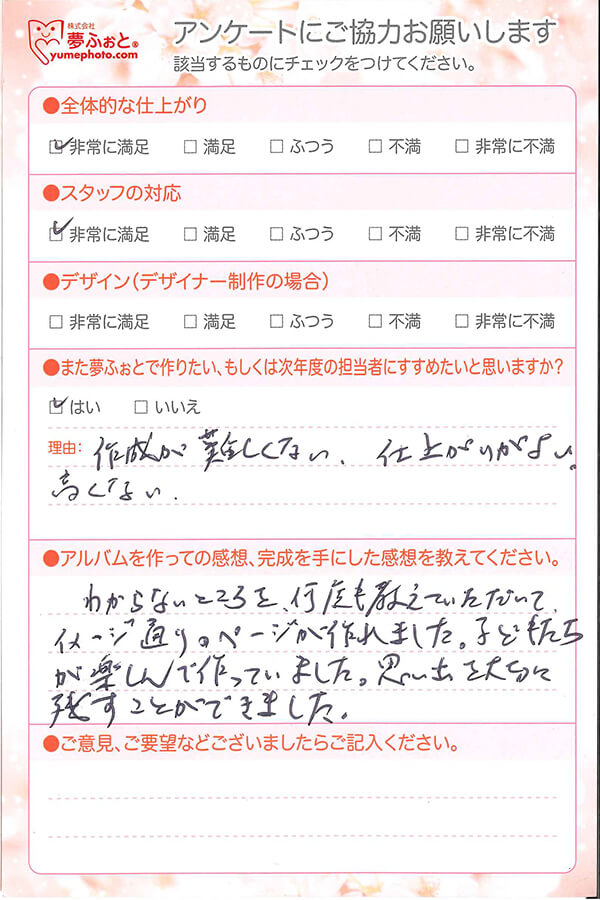 株式会社
夢ふぉと®
yumephoto.com
アンケートにご協力お願いします
該当するものにチェックをつけてください。
●全体的な仕上がり
☑非常に満足 □満足 □ふつう □不満 □非常に不満
●スタッフの対応
☑非常に満足 □満足 □ふつう □不満 □非常に不満
●デザイン（デザイナー制作の場合）
□非常に満足 □満足 □ふつう □不満 □非常に不満
●また夢ふぉとで作りたい、もしくは次年度の担当者にすすめたいと思いますか？
☑はい □いいえ
理由： 作成が難しくない、仕上がりがよい。
高くない．
●アルバムを作っての感想、完成を手にした感想を教えてください。
わからないところを、何度も教えていただいて、
イメージ通りのページが作れました。子どもたち
が楽しんで作っていました。思い出を大切に
残すことができました。
●ご意見、ご要望などございましたらご記入ください。